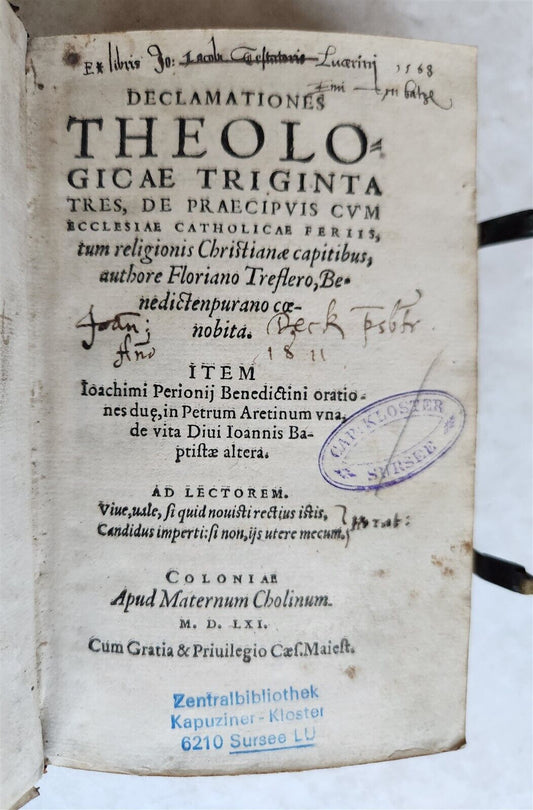 Ex libris Jo: Jacobi Lucerini 1568
Emi
DECLAMATIONES
THEOLO-
GICAE TRIGINTA
TRES, DE PRAECIPVIS CVM
ECCLESIAE CATHOLICAE FERIIS,
tum religionis Christianæ capitibus,
authore Floriano Treflero, Be-
nedictenpurano cœ-
nobita.
Joan;
Deck psbtr.
Año 1811
ITEM
Ioachimi Perionij Benedictini oratio-
nes duę, in Petrum Aretinum vna,
de vita Diui Ioannis Ba-
ptistæ altera.
CAP. KLOSTER
SURSEE
AD LECTOREM.
Viue, vale, si quid nouisti rectius istis,
Candidus imperti: si non, ijs utere mecum.
Horat:
COLONIAE
Apud Maternum Cholinum.
M. D. LXI.
Cum Gratia & Priuilegio Cæs. Maiest.
Zentralbibliothek
Kapuziner-Kloster
6210 Sursee LU